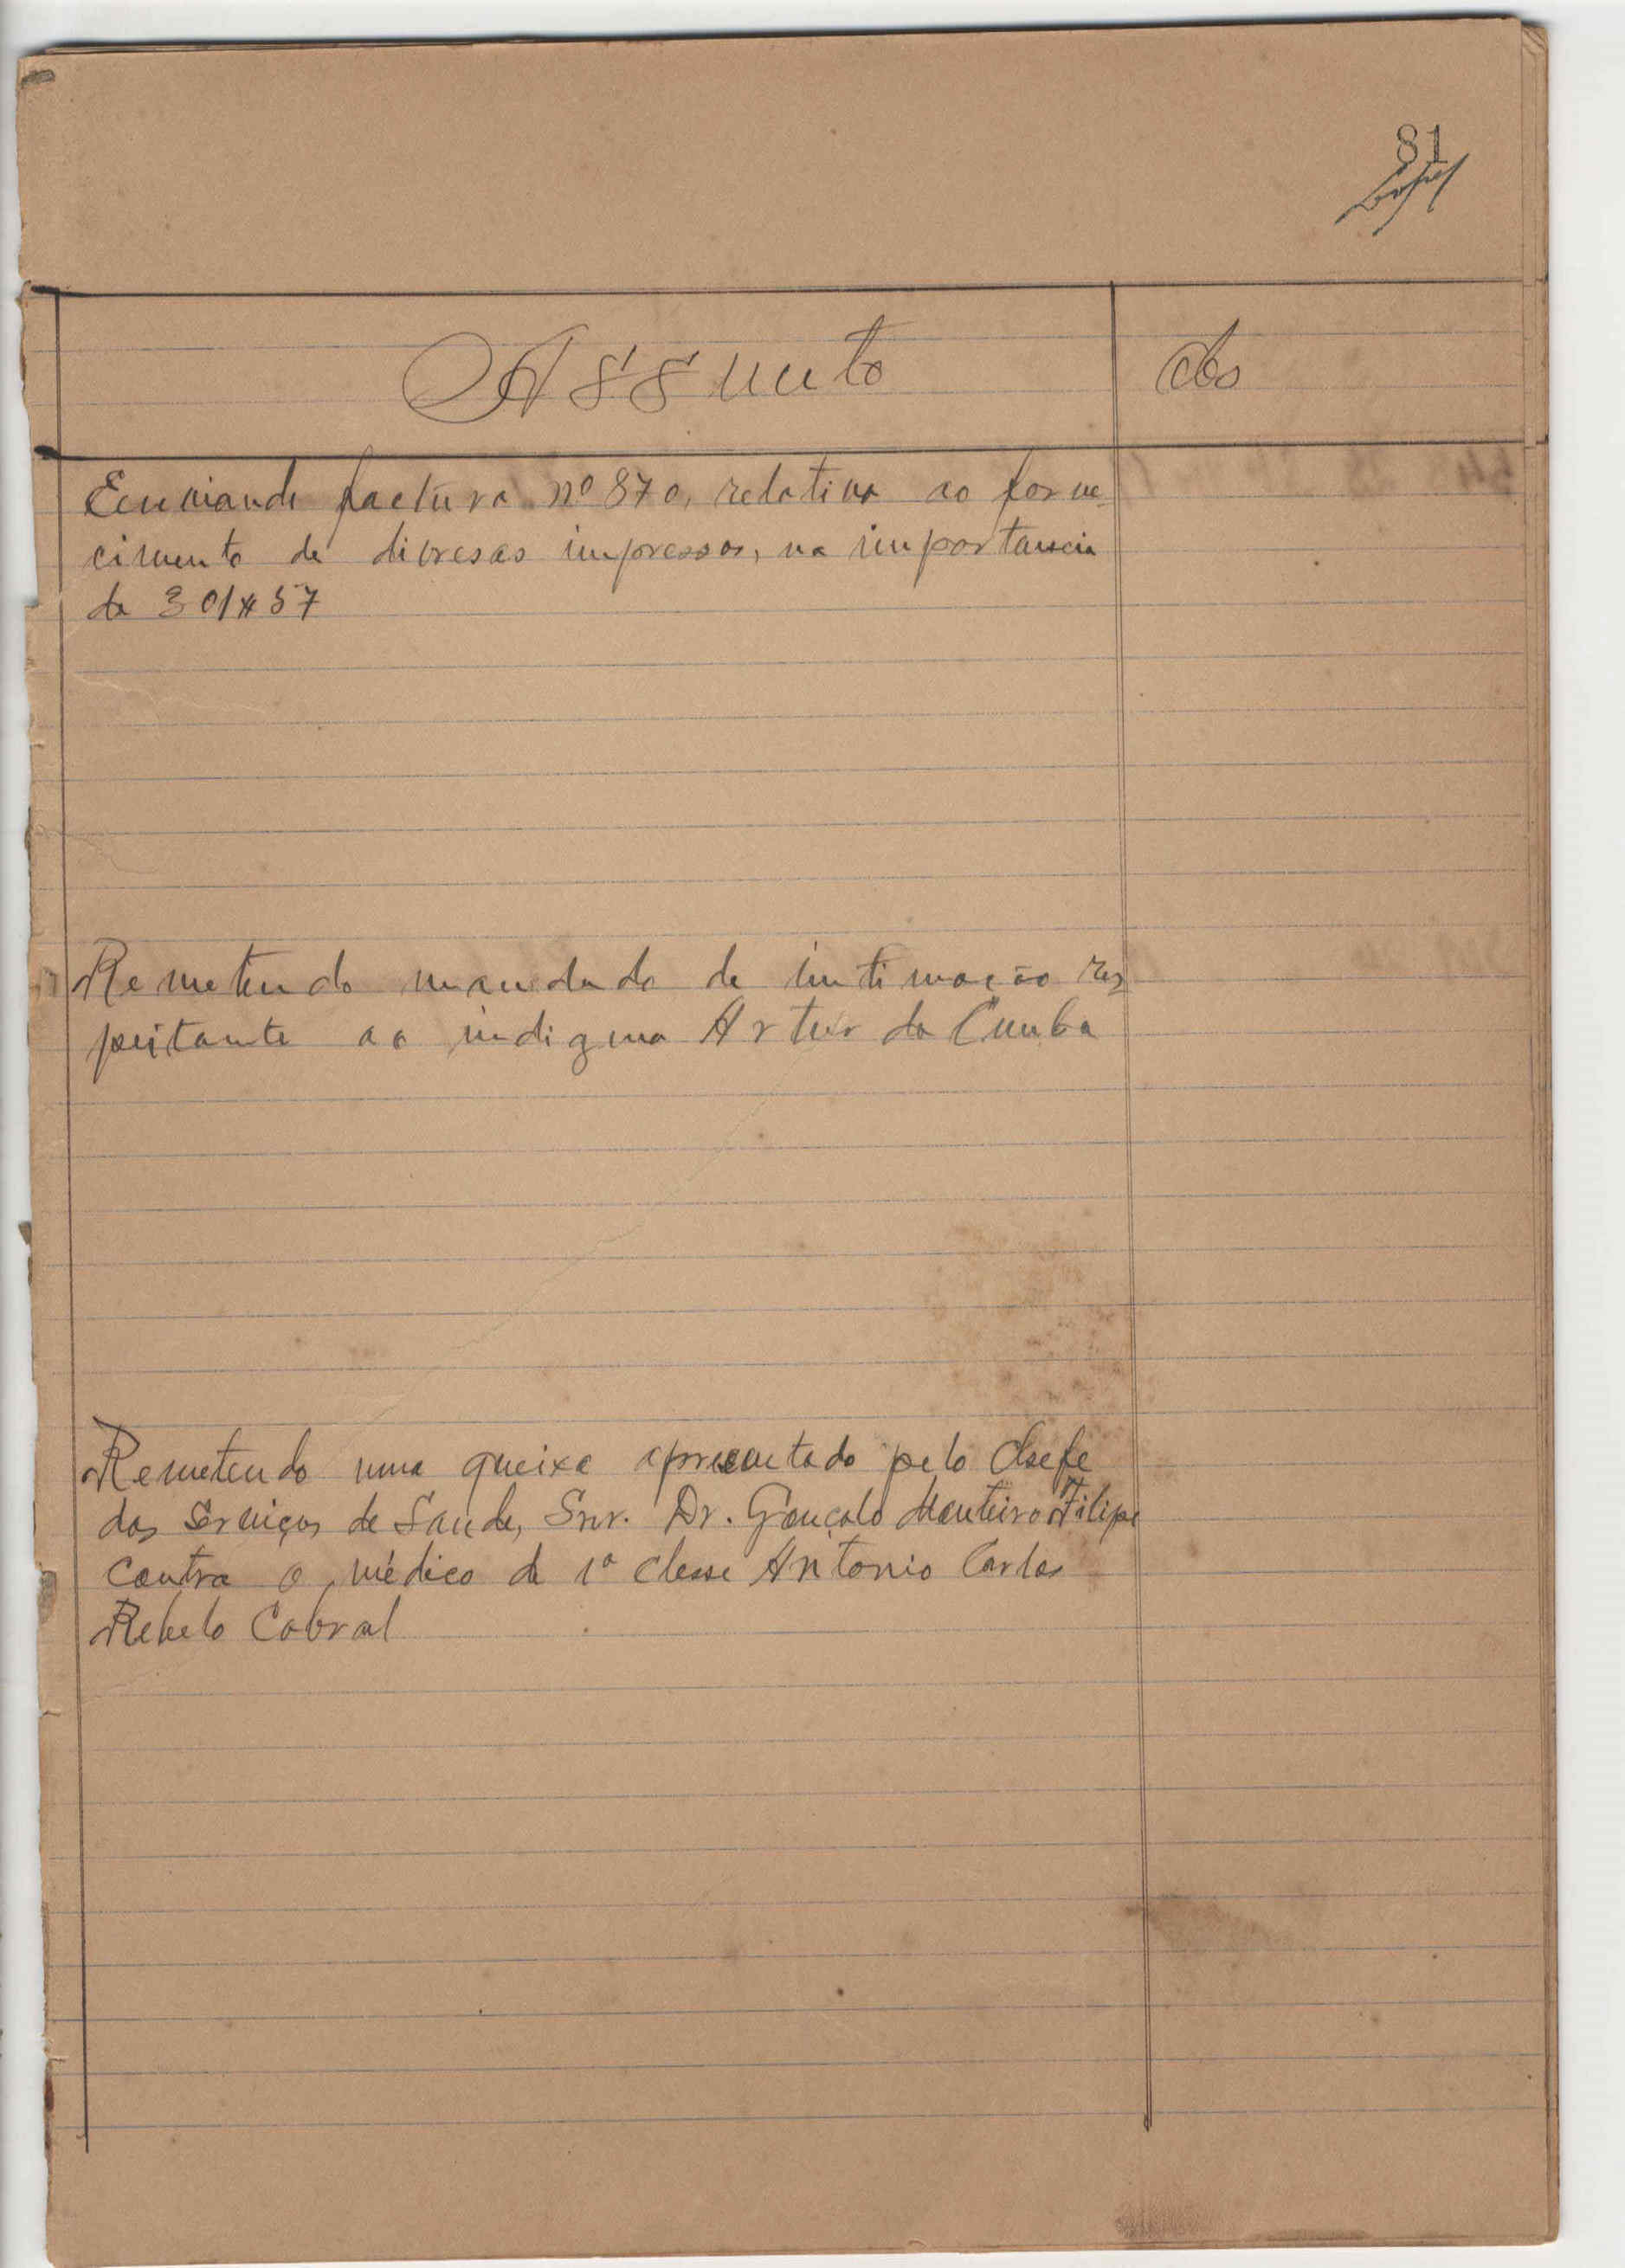 81
Assunto
Obs
Enuviando factura nº 870, relativa ao forne
cimento de diversas impressos, na importancia
de 301$57
Remetendo mandado de intimação res
peitante ao indigena Artur da Cunha
Remetendo uma queixa apresentado pelo Chefe
dos Serviços de Saude, Snr. Dr. Gonçalo Monteiro Filipe
contra o médico de 1ª classe Antonio Carlos
Rebelo Cabral